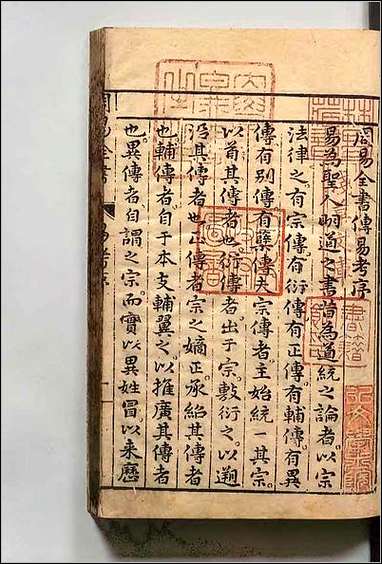 周易全書傳易考序
易為聖人明道之書昔為道統之論者以宗
法律之有宗傳有衍傳有正傳有輔傳有異
傳有別傳有櫱傳夫宗傳者主始統一其宗
以首其傳者也衍傳者出于宗敷衍之以遡
沿其傳者也正傳者宗之嫡正承紹其傳者
也輔傳者自于本支輔翼之以推廣其傳者
也異傳者自謂之宗而實以異姓冒以來歷
周易全書 易考序 一